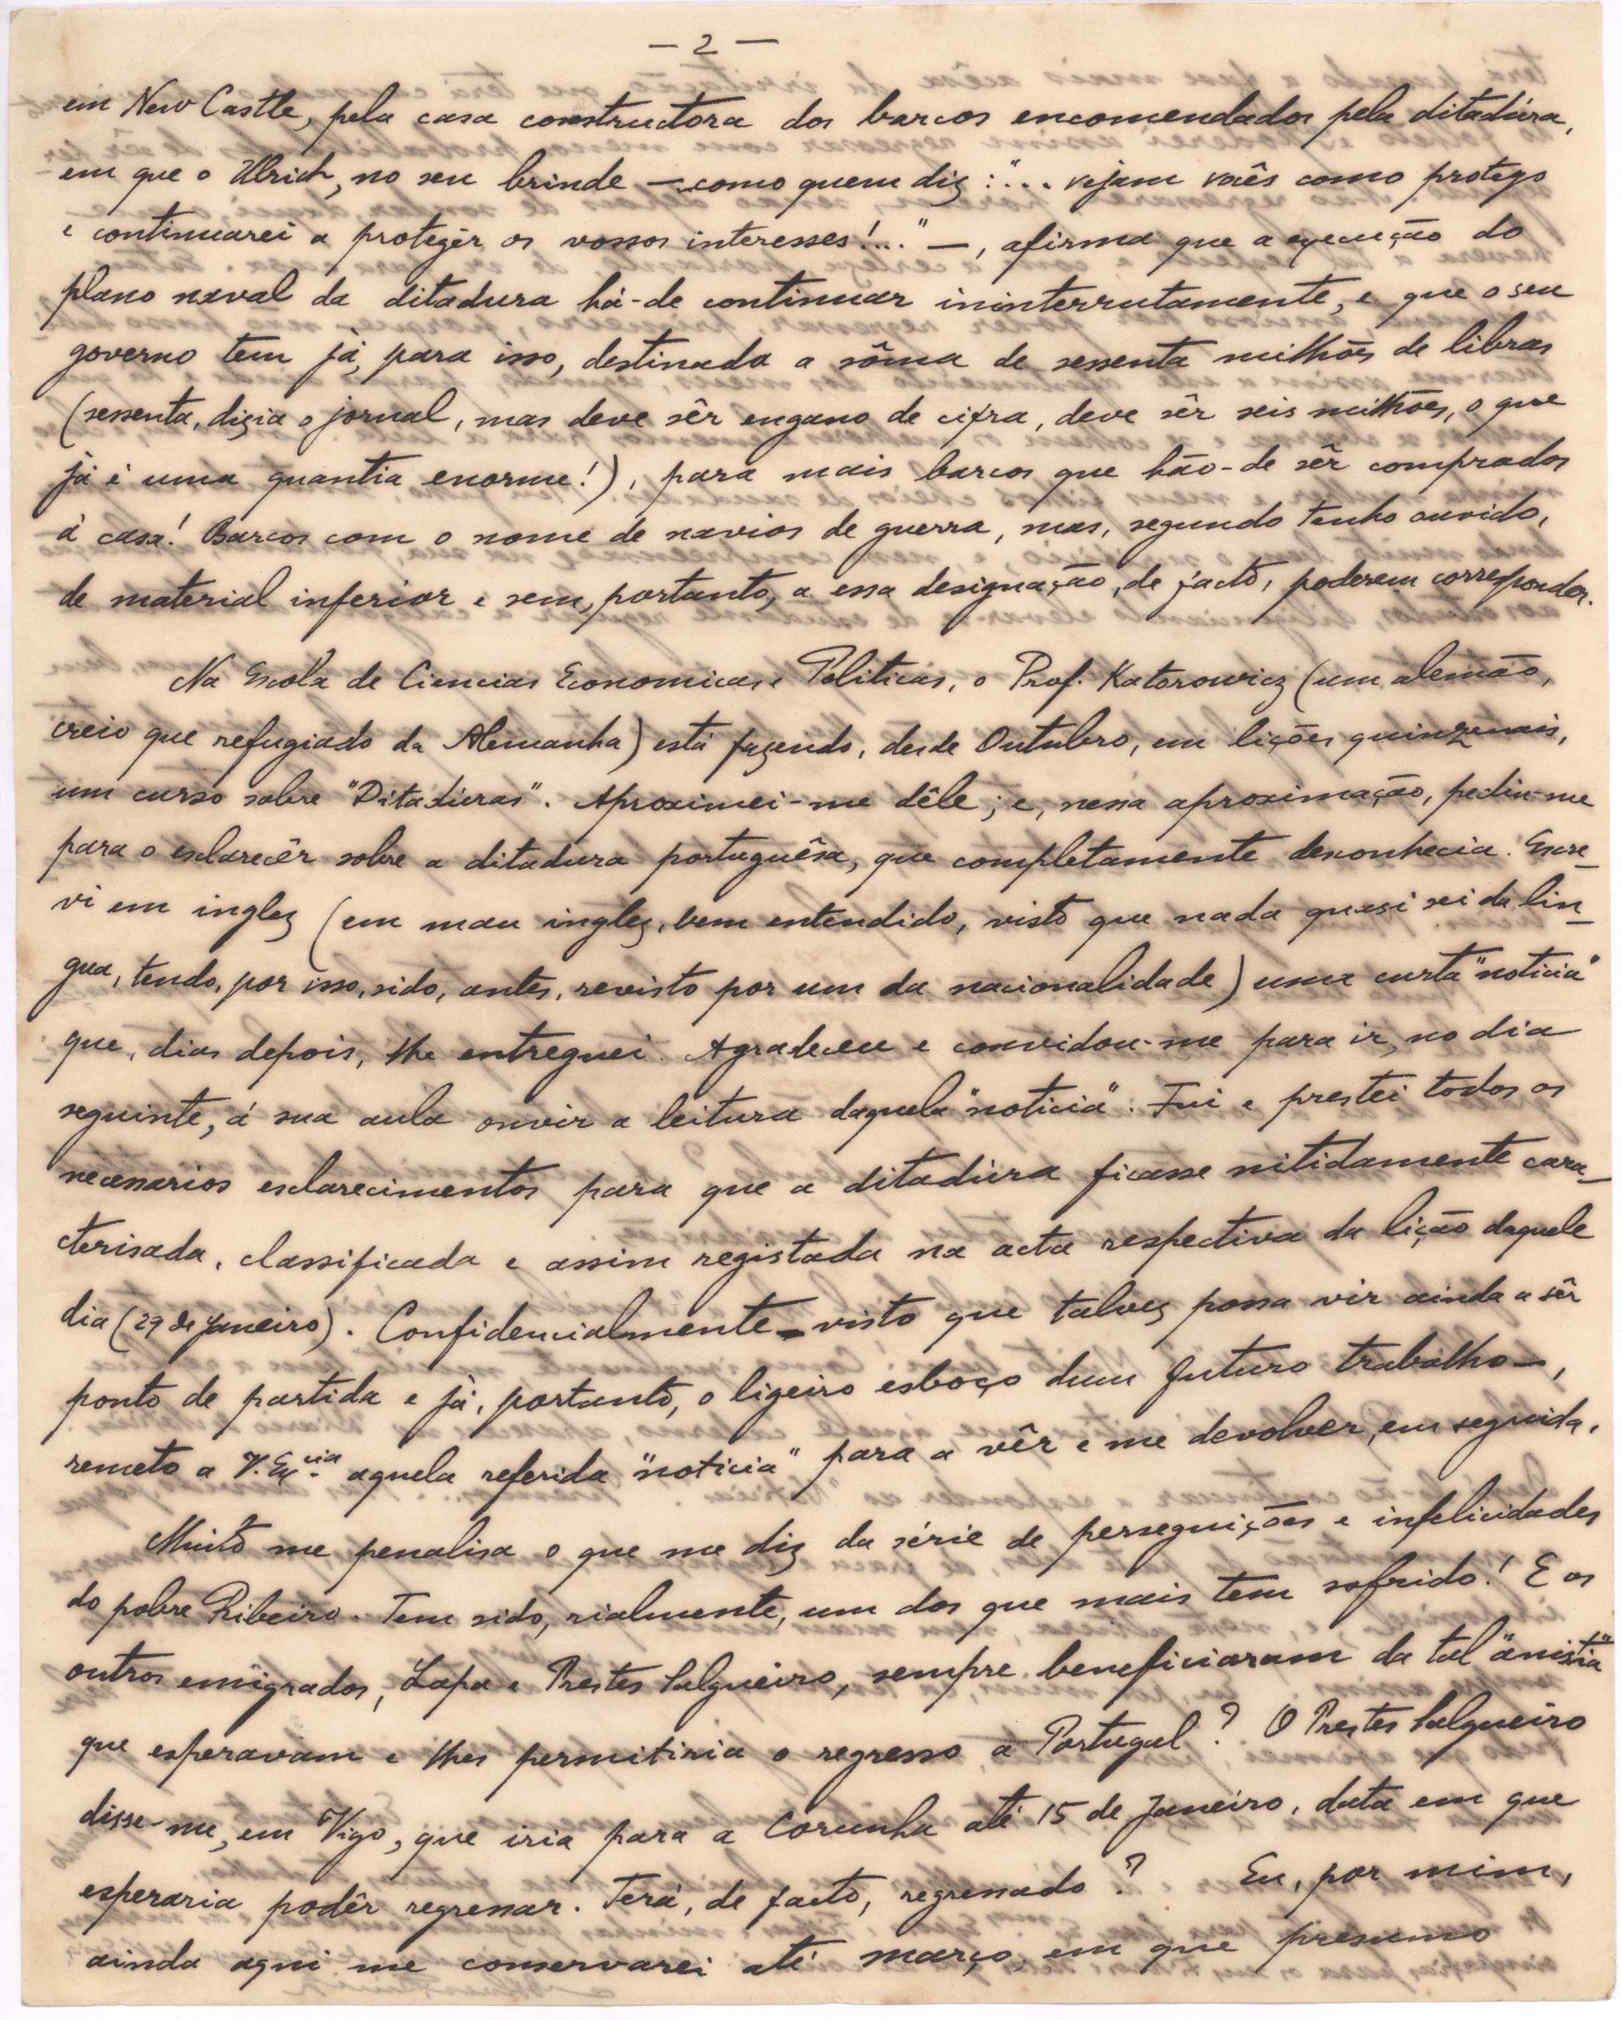 — 2 —
em New Castle, pela casa constructora dos barcos encomendados pela ditadúra,
em que o Ulrich, no seu brinde — como quem diz: "... vejam vocês como protejo
e continuarei a protegêr os vossos interesses!..." —, afirma que a execução do
plano naval da ditadura há-de continuar ininterrutamente, e que o seu
governo tem já, para isso, destinada a sôma de sessenta milhões de libras
(sessenta, dizia o jornal, mas deve sêr engano de cifra, deve sêr seis milhões, o que
já é uma quantia enorme!), para mais barcos que hão-de sêr comprados
á casa! Barcos com o nome de navios de guerra, mas, segundo tenho ouvido,
de material inferior e sem, portanto, a essa designação, de facto, poderem corresponder.
Na Escola de Ciencias Economicas e Politicas, o Prof. Katorowicz (um alemão,
creio que refugiado da Alemanha) está fazendo, desde Outubro, em lições quinzenais,
um curso sobre "Ditaduras". Aproximei-me dêle; e, nessa aproximação, pediu-me
para o esclarecêr sobre a ditadura portuguêsa, que completamente desconhecia. Escre-
vi em inglez (em mau inglez, bem entendido, visto que nada quasi sei da lin-
gua, tendo, por isso, sido, antes, revisto por um da nacionalidade) uma curta "noticia"
que, dias depois, lhe entreguei. Agradeceu e convidou-me para ir, no dia
seguinte, á sua aula ouvir a leitura daquela "noticia". Fui e prestei todos os
necessarios esclarecimentos para que a ditadúra ficasse nitidamente cara-
cterisada, classificada e assim registada na acta respectiva da lição daquele
dia (29 de Janeiro). Confidencialmente — visto que talvez possa vir ainda a sêr
ponto de partida e já, portanto, o ligeiro esboço dum futuro trabalho —,
remeto a V. Ex.cia aquela referida "noticia" para a vêr e me devolver, em seguida.
Muito me penalisa o que me diz da série de perseguições e infelicidades
do pobre Ribeiro. Tem sido, rialmente, um dos que mais tem sofrido! E os
outros emigrados, Lapa e Prestes Salgueiro, sempre beneficiaram da tal "amistia"
que esperavam e lhes permitiria o regresso a Portugal? O Prestes Salgueiro
disse-me, em Vigo, que iria para a Corunha até 15 de Janeiro, data em que
esperaria podêr regressar. Terá, de facto, regressado? Eu, por mim,
ainda aqui me conservarei até março, em que presumo